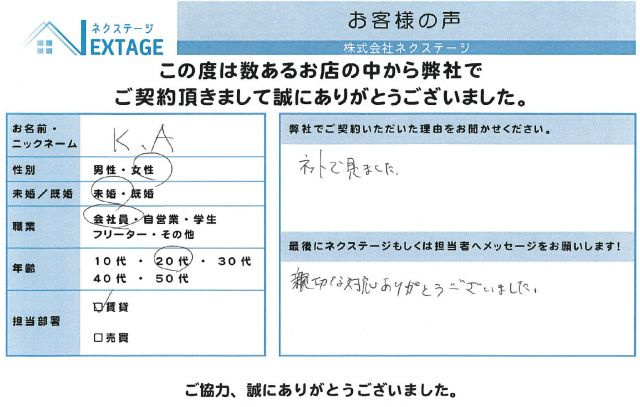 ネクステージ
NEXTAGE
お客様の声
株式会社ネクステージ
この度は数あるお店の中から弊社で
ご契約頂きまして誠にありがとうございました。
お名前・
ニックネーム
K、A
性別
男性・女性
未婚/既婚
未婚・既婚
職業
会社員・自営業・学生
フリーター・その他
年齢
10代 ・ 20代 ・ 30代
40代 ・ 50代
担当部署
☑賃貸
□売買
弊社でご契約いただいた理由をお聞かせください。
ネットで見ました。
最後にネクステージもしくは担当者へメッセージをお願いします!
親切な対応ありがとうございました。
ご協力、誠にありがとうございました。